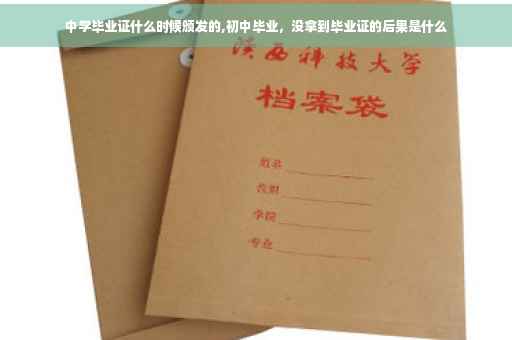 中学毕业证什么时候颁发的,初中毕业，没拿到毕业证的后果是什么
陕西科技大学
档案袋
姓名
学院
专业